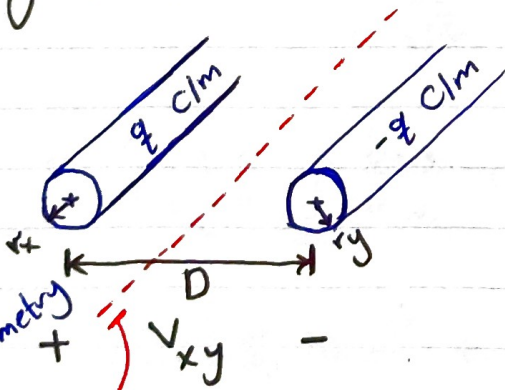 q C/m
-q C/m
ry
D
metry
+ Vxy -